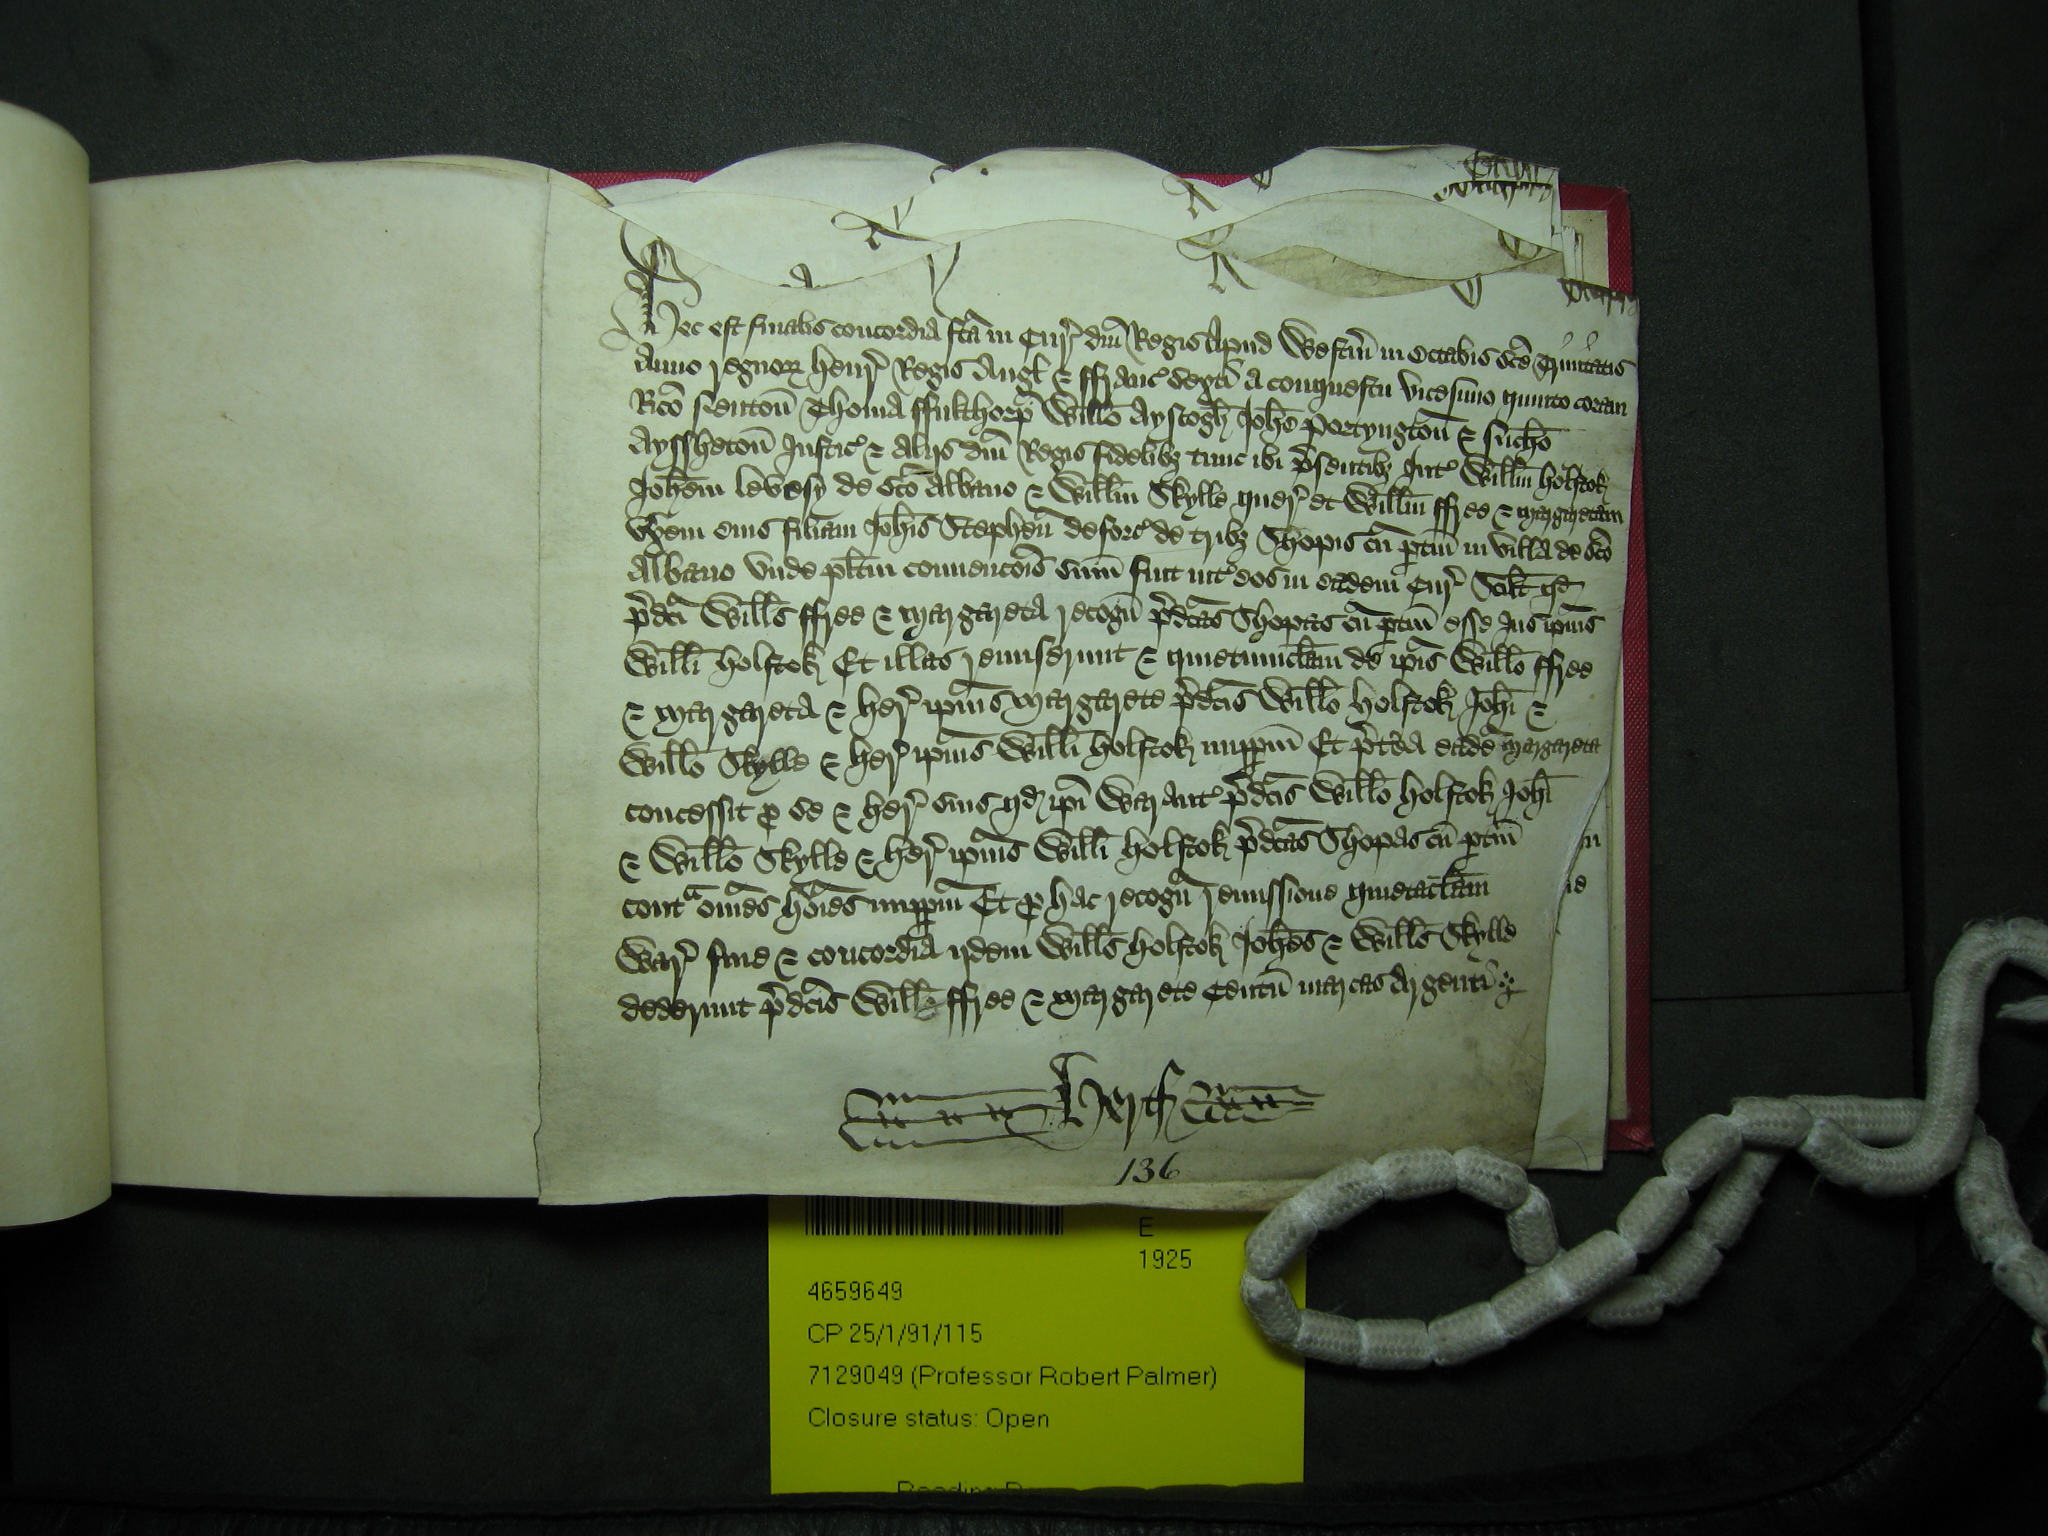 Hec est finalis concordia fc̃a in Cur̃ dñi Regis Apud Westm̃ in Octabis sc̃e Trinitatis
Anno regnoꝝ Henr̃ Regis Angł & ffranc̃ sexti a conquestu vicesimo quinto coram
Ric̃o Neuton̄ Thoma ffulthorp̃ Willo Ayscogh̃ Joh̃e Portyngton̄ & Nich̃o
Ayssheton̄ Justic̃ & Alijs dñi Regis fidelibꝫ tunc ibi p̃sentibꝫ Int̃ Willm̃ Holstok
Joh̃em Levesy de Sc̃o Albano & Willm̃ Skylle quer̃ et Willm̃ ffree & Margaretam
vx̃em eius filiam Joh̃is Stephen̄ deforc̃ de tribꝫ Shopis cū ꝑtin̄ in villa de Sc̃o
Albano Vnde pl̃itm conuenc̃ois sum̃ fuit int̃ eos in eadem Cur̃ Scil̃t qd̃
p̃dc̃i Wills ffree & Margareta recogn̄ p̃dc̃as Shopas cū ꝑtin̄ esse Jus ip̃ius
Willi Holstok Et illas remiserunt & quietumclam̃ de ip̃is Willo ffree
& Margareta & her̃ ip̃ius Margarete p̃dc̃is Willo Holstok Joh̃i &
Willo Skylle & her̃ ip̃ius Willi Holstok imꝑpm̃ Et p̃t̃ea eadē Margareta
concessit ꝑ se & her̃ suis qd̃ ip̃i Warant̃ p̃dc̃is Willo Holstok Joh̃i
& Willo Skylle & her̃ ip̃ius Willi Holstok p̃dc̃as Shopas cū ꝑtin̄
contᵃ om̃es hõies imꝑpm̃ Et ꝑ hac recogn̄ remissione quietaclam̃
War̃ fine & concordia ijdem Wills Holstok Joh̃es & Wills Skylle
dederunt p̃dc̃is Willo ffree & Margarete Centū marcas Argenti
Hertf
136
E
1925
4659649
CP 25/1/91/115
7129049 (Professor Robert Palmer)
Closure status: Open